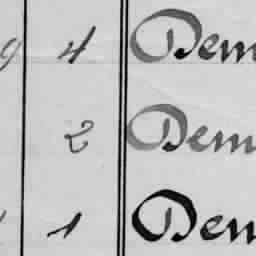 9 4 Dem
2 Dem
1 Dem